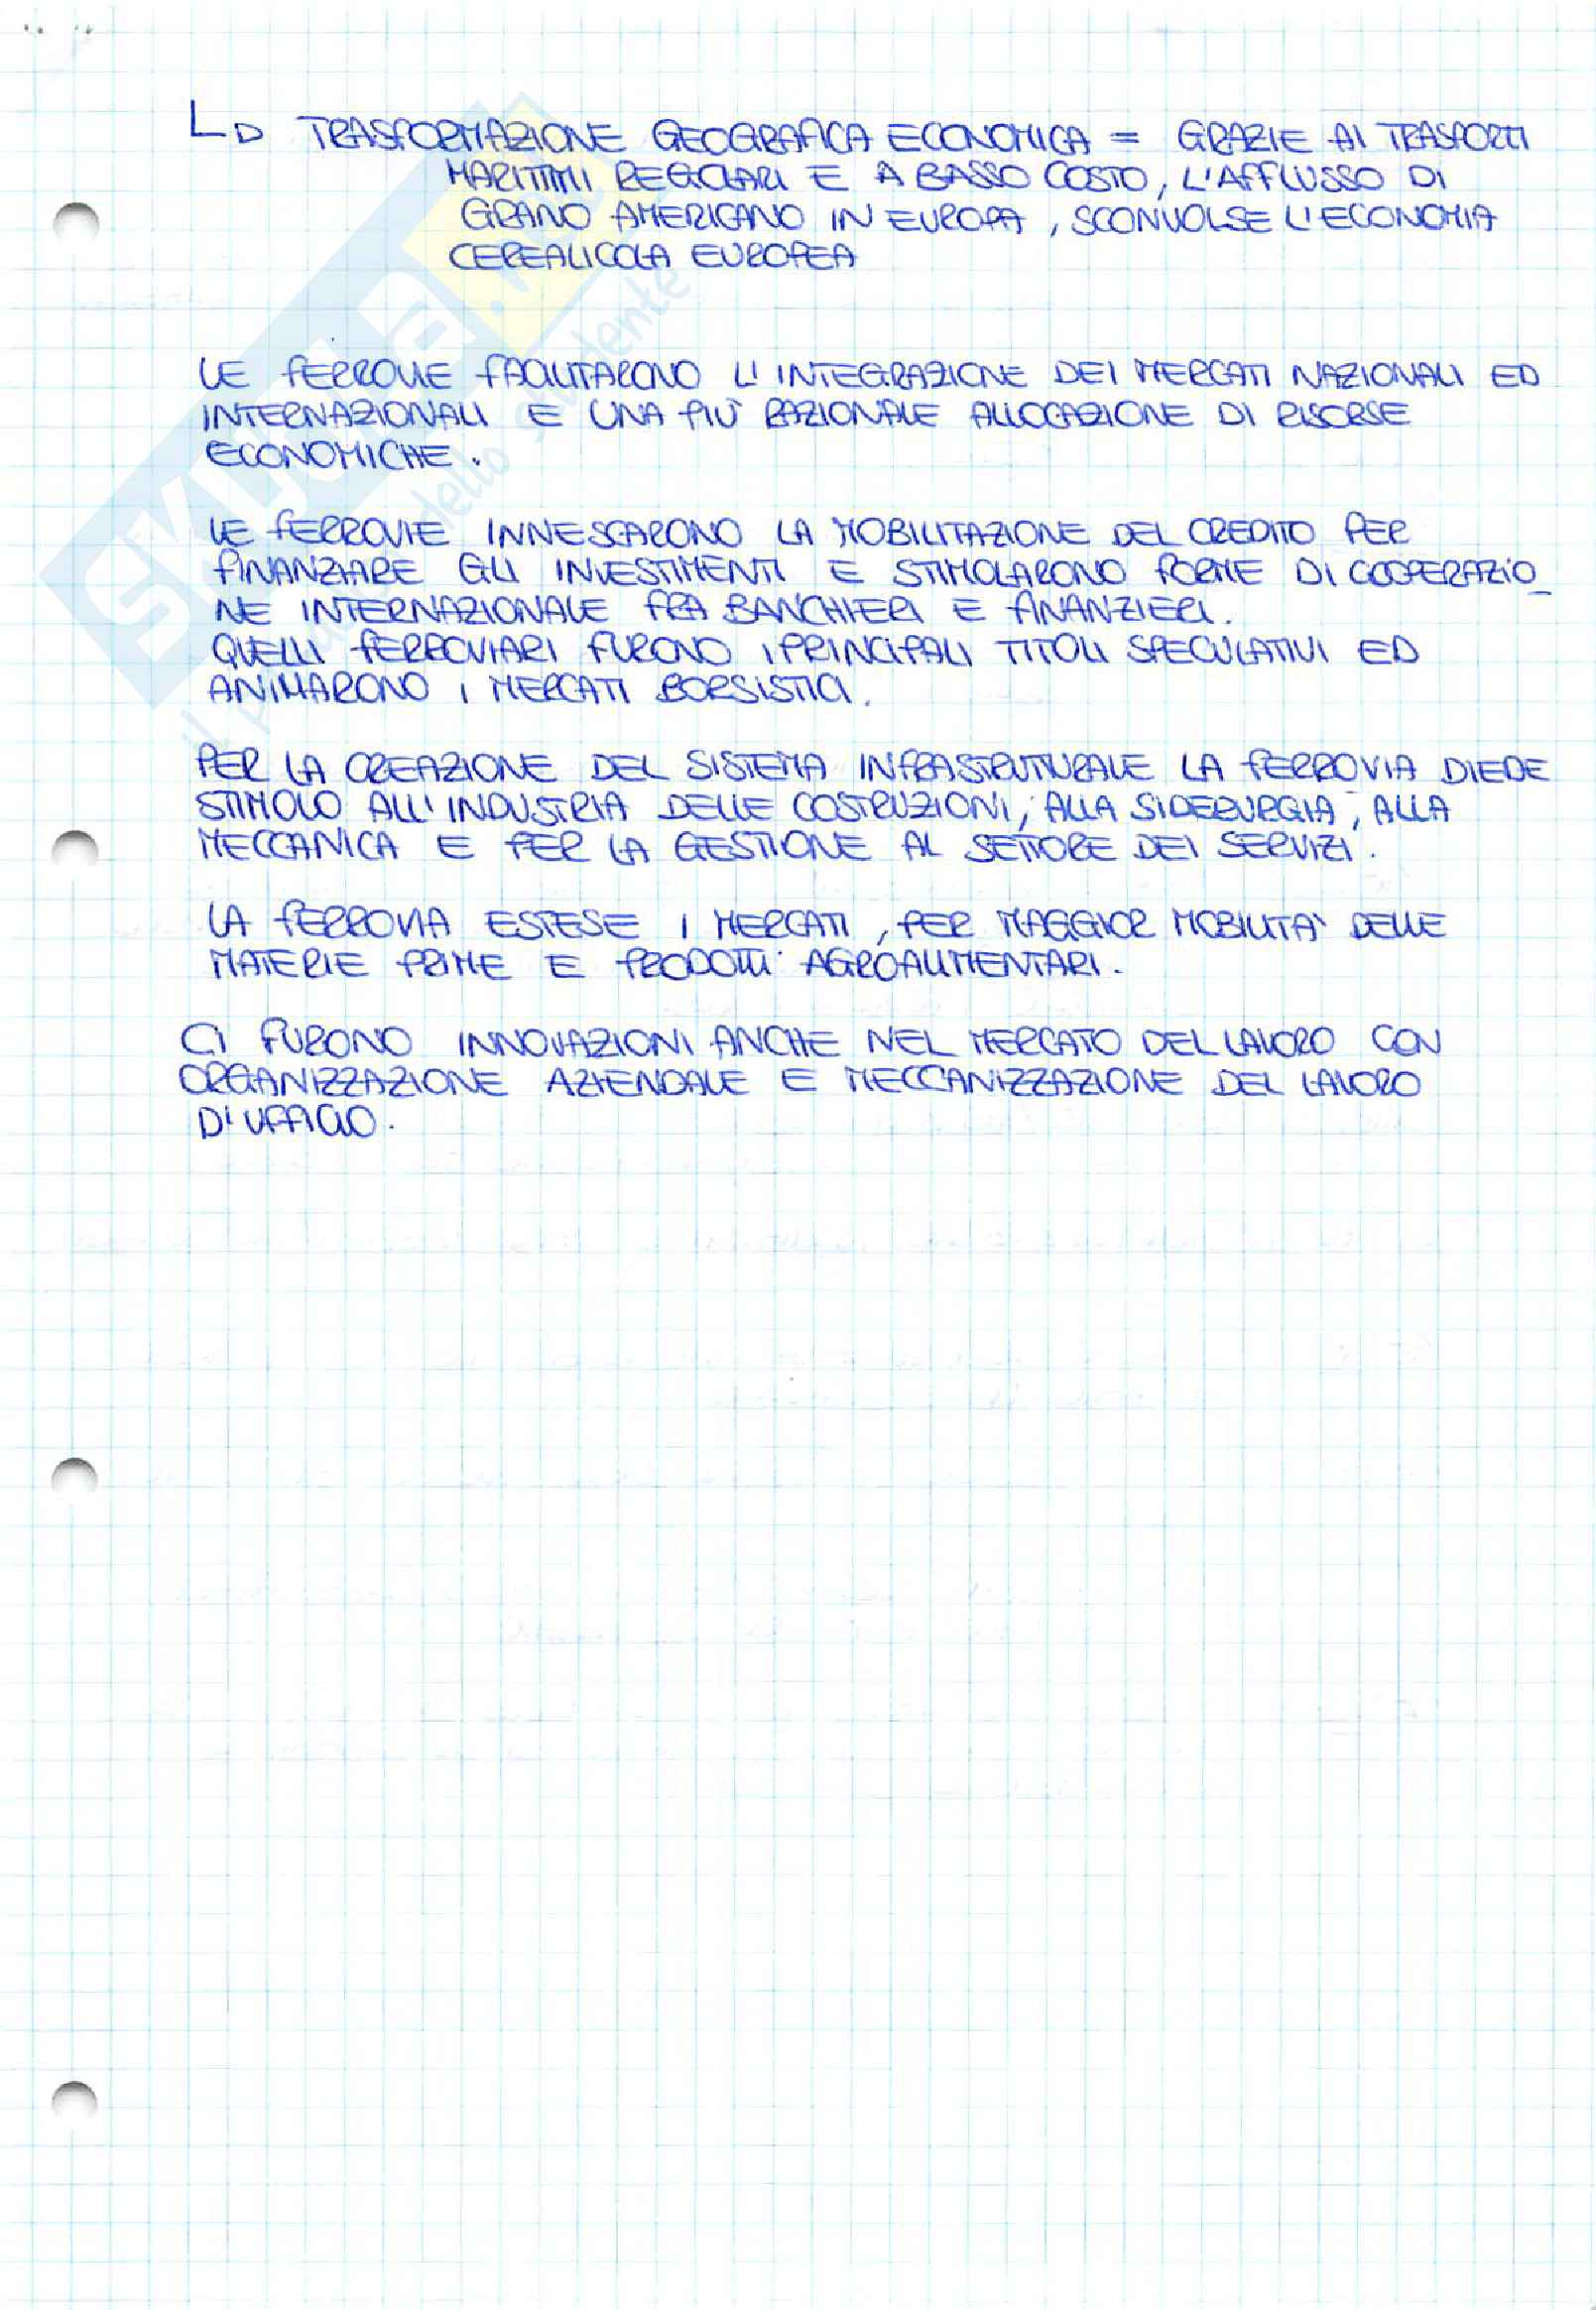 L▷ TRASFORMAZIONE GEOGRAFICA ECONOMICA = GRAZIE AI TRASPORTI
MARITTIMI REGOLARI E A BASSO COSTO, L'AFFLUSSO DI
GRANO AMERICANO IN EUROPA, SCONVOLSE L'ECONOMIA
CEREALICOLA EUROPEA
LE FERROVIE FACILITARONO L'INTEGRAZIONE DEI MERCATI NAZIONALI ED
INTERNAZIONALI E UNA PIÙ RAZIONALE ALLOCAZIONE DI RISORSE
ECONOMICHE.
LE FERROVIE INNESCARONO LA MOBILITAZIONE DEL CREDITO PER
FINANZIARE GLI INVESTIMENTI E STIMOLARONO FORME DI COOPERAZIO_
NE INTERNAZIONALE FRA BANCHIERI E FINANZIERI.
QUELLI FERROVIARI FURONO I PRINCIPALI TITOLI SPECULATIVI ED
ANIMARONO I MERCATI BORSISTICI.
PER LA CREAZIONE DEL SISTEMA INFRASTRUTTURALE LA FERROVIA DIEDE
STIMOLO ALL'INDUSTRIA DELLE COSTRUZIONI, ALLA SIDERURGIA, ALLA
MECCANICA E PER LA GESTIONE AL SETTORE DEI SERVIZI.
LA FERROVIA ESTESE I MERCATI, PER MAGGIOR MOBILITA' DELLE
MATERIE PRIME E PRODOTTI AGROALIMENTARI.
CI FURONO INNOVAZIONI ANCHE NEL MERCATO DEL LAVORO CON
ORGANIZZAZIONE AZIENDALE E MECCANIZZAZIONE DEL LAVORO
D'UFFICIO.
skuola
il dello studente